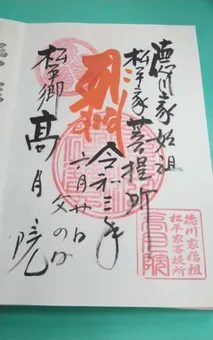 德川家始祖
松平家菩提所
令和三年
六月廿日
父の日
松平郷 高月院
徳川家始祖
松平家菩提所
高月院